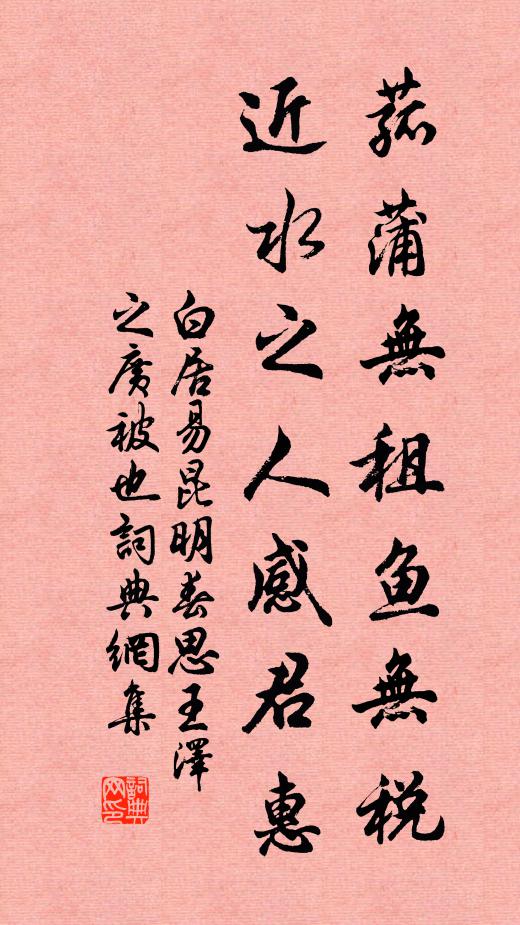 菰蒲無租鱼無税
近水之人感君惠
白居易昆明春思王澤
之廣被也詞典網集
詞典
网印